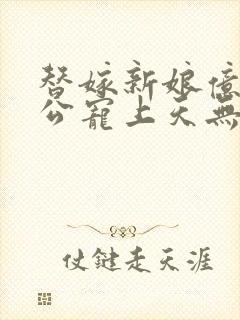 替嫁新娘億
公寵上天無
仗鍵走天涯